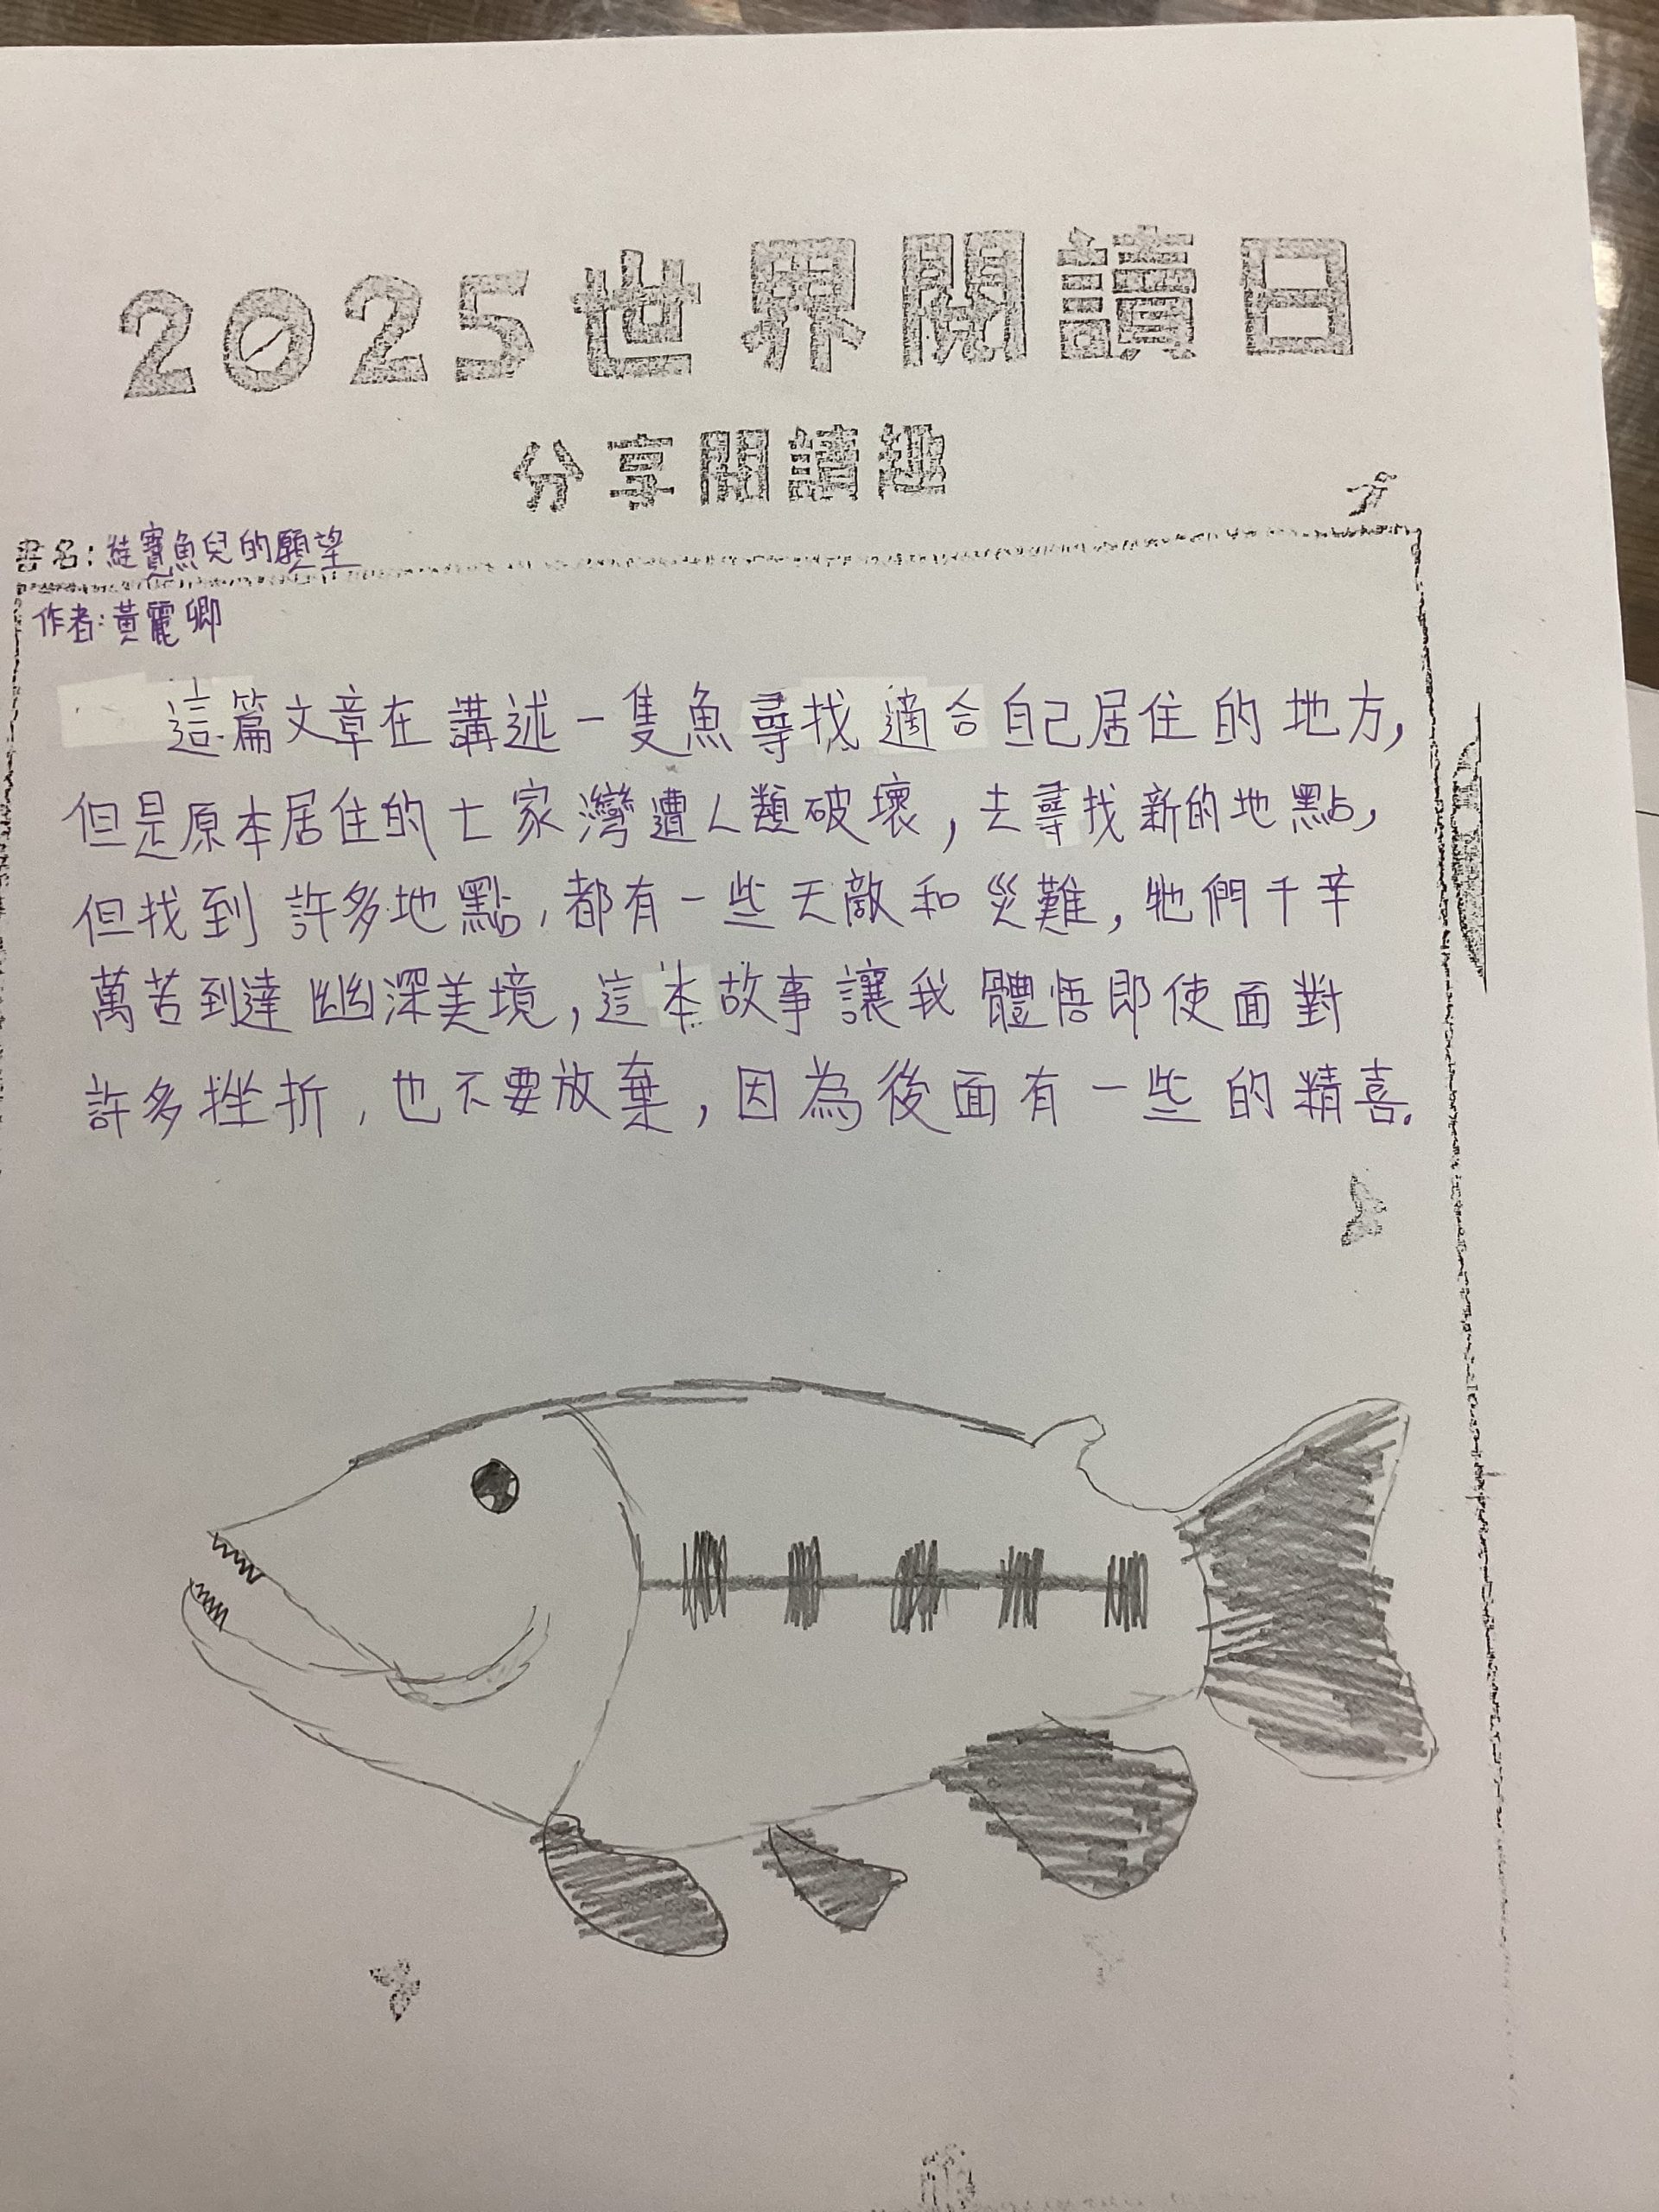 2025世界閱讀日
分享閱讀趣
書名:娃賽魚兒的願望
作者:黃麗卿
這篇文章在講述一隻魚尋找適合自己居住的地方,
但是原本居住的七家灣遭人類破壞,去尋找新的地點,
但找到許多地點,都有一些天敵和災難,牠們千辛
萬苦到達幽深美境,這本故事讓我體悟即使面對
許多挫折,也不要放棄,因為後面有一些的精喜.